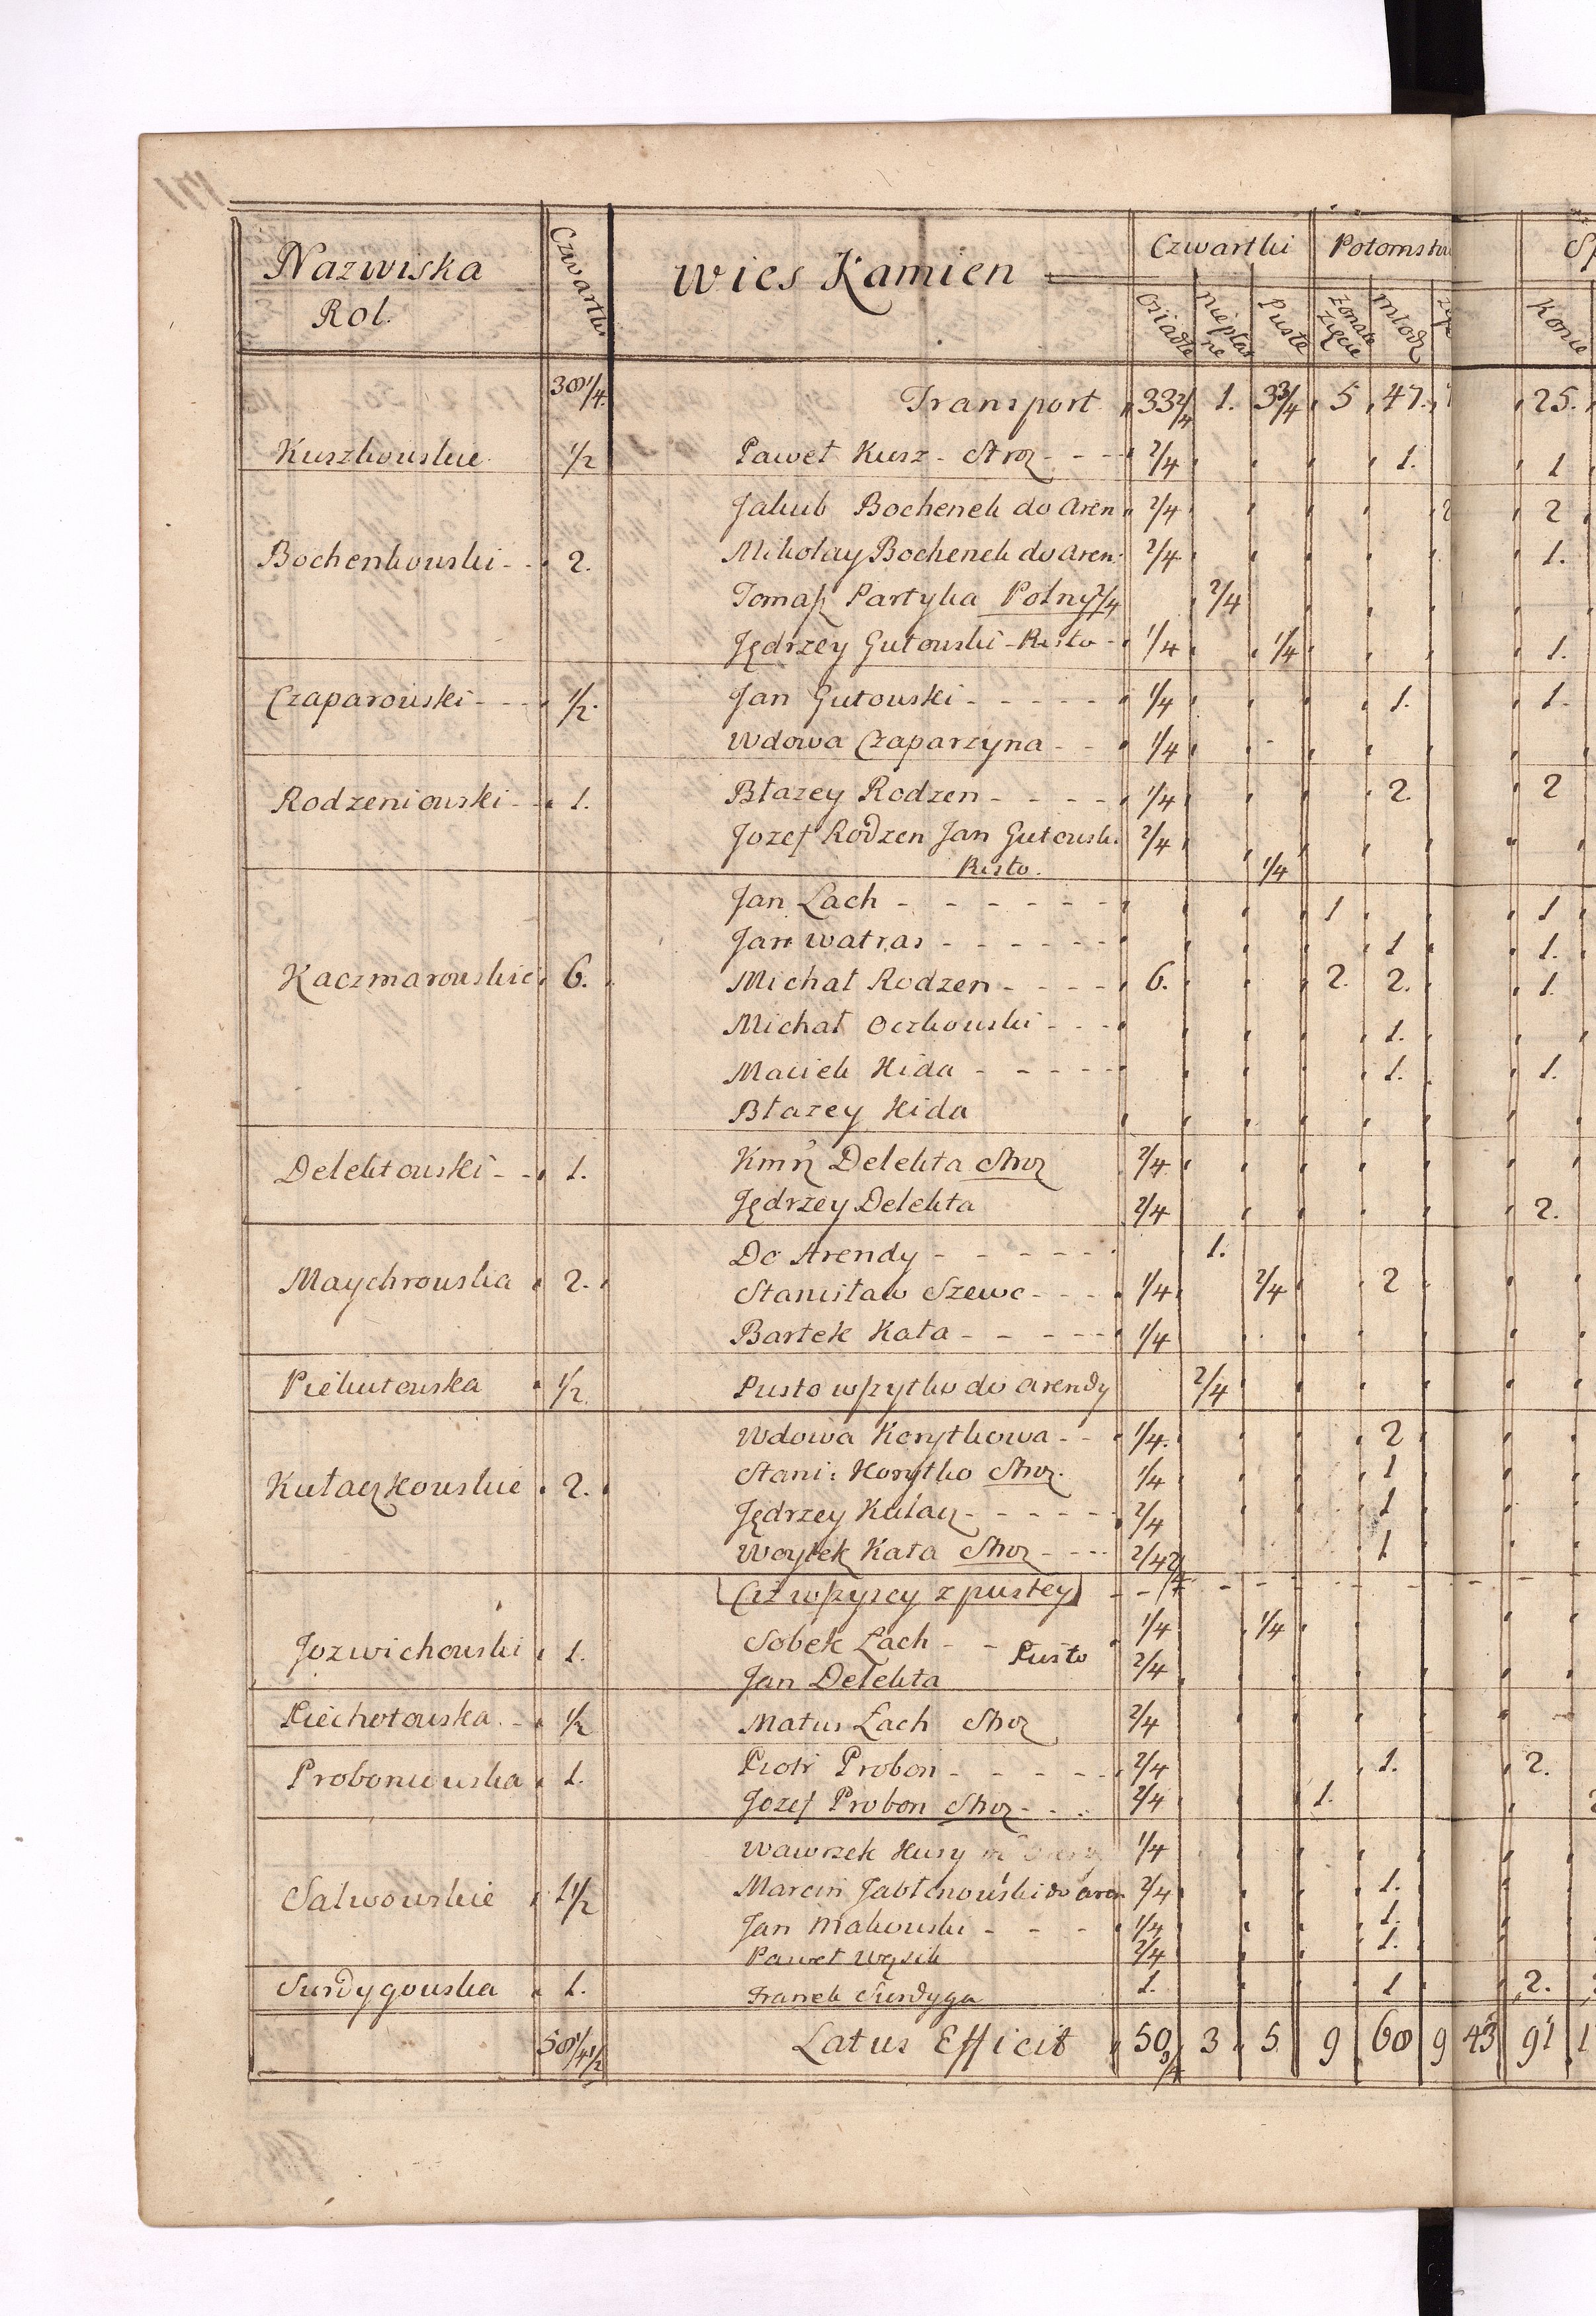 Nazwiska Rol. Czwartki Wies Kamien Czwartki Potomstw
Osiadłe niepłatne Puste żonate zięcie młodz Konie
38 1/4 Transport 33 2/4 1. 3 3/4 5 47. 25.
Kuszkouskie 1/2 Paweł Kusz - Stroz 2/4 1. 1
Jakub Bochenek do aren 2/4 2
Bochenkouski 2. Mikolay Bochenek do aren 2/4 1.
Tomasz Partyka Polny 2/4 2/4
Jędrzey Gutouski - Pusto 1/4 1/4 1.
Czaparouski 1/2 Jan Gutouski 1/4 1. 1.
Wdowa Czaparzyna 1/4
Rodzeniouski 1. Błazey Rodzen 1/4 2. 2
Jozef Rodzen Jan Gutouski 2/4
Pusto. 1/4
Jan Lach 1 1
Jan Watras 1 1.
Kaczmarouskie 6. Michał Rodzen 6. 2. 2. 1.
Michał Oczkouski 1.
Maciek Kida 1. 1.
Błazey Kida
Delektouski 1. Kmń Delekta Stroz 2/4
Jędrzey Delekta 2/4 2.
Do Arendy 1.
Maychrouska 2. Stanisław Szewc 1/4 2/4 2
Bartek Kata 1/4
Piekutouska 1/2 Pusto wszytko do arendy 2/4
Wdowa Korytkowa 1/4 2
Kułaczkouskie 2. Stani: Korytko Stroz 1/4 1
Jędrzey Kułacz 2/4 1
Woytek Kata Stroz 2/4 1
Ci wszyscy z pustey
Jozwichouski 1. Sobek Lach Pusto 1/4 1/4
Jan Delekta 2/4
Piechotouska 1/2 Matus Lach Stroz 2/4
Proboniouska 1. Piotr Proboń 2/4 1. 2.
Jozef Proboń Stroz 2/4 1.
Wawrzek Kusy 1/4
Salwouskie 1 1/2 Marcin Jabłonouski do aren 2/4 1.
Jan Makouski 1/4 1.
Paweł Wąsik 2/4 1.
Surdygouska 1. Franek Surdyga 1. 1 2.
58 1/4 1/2 Latus Efficit 50 3/4 3 5 9 60 9 43 91